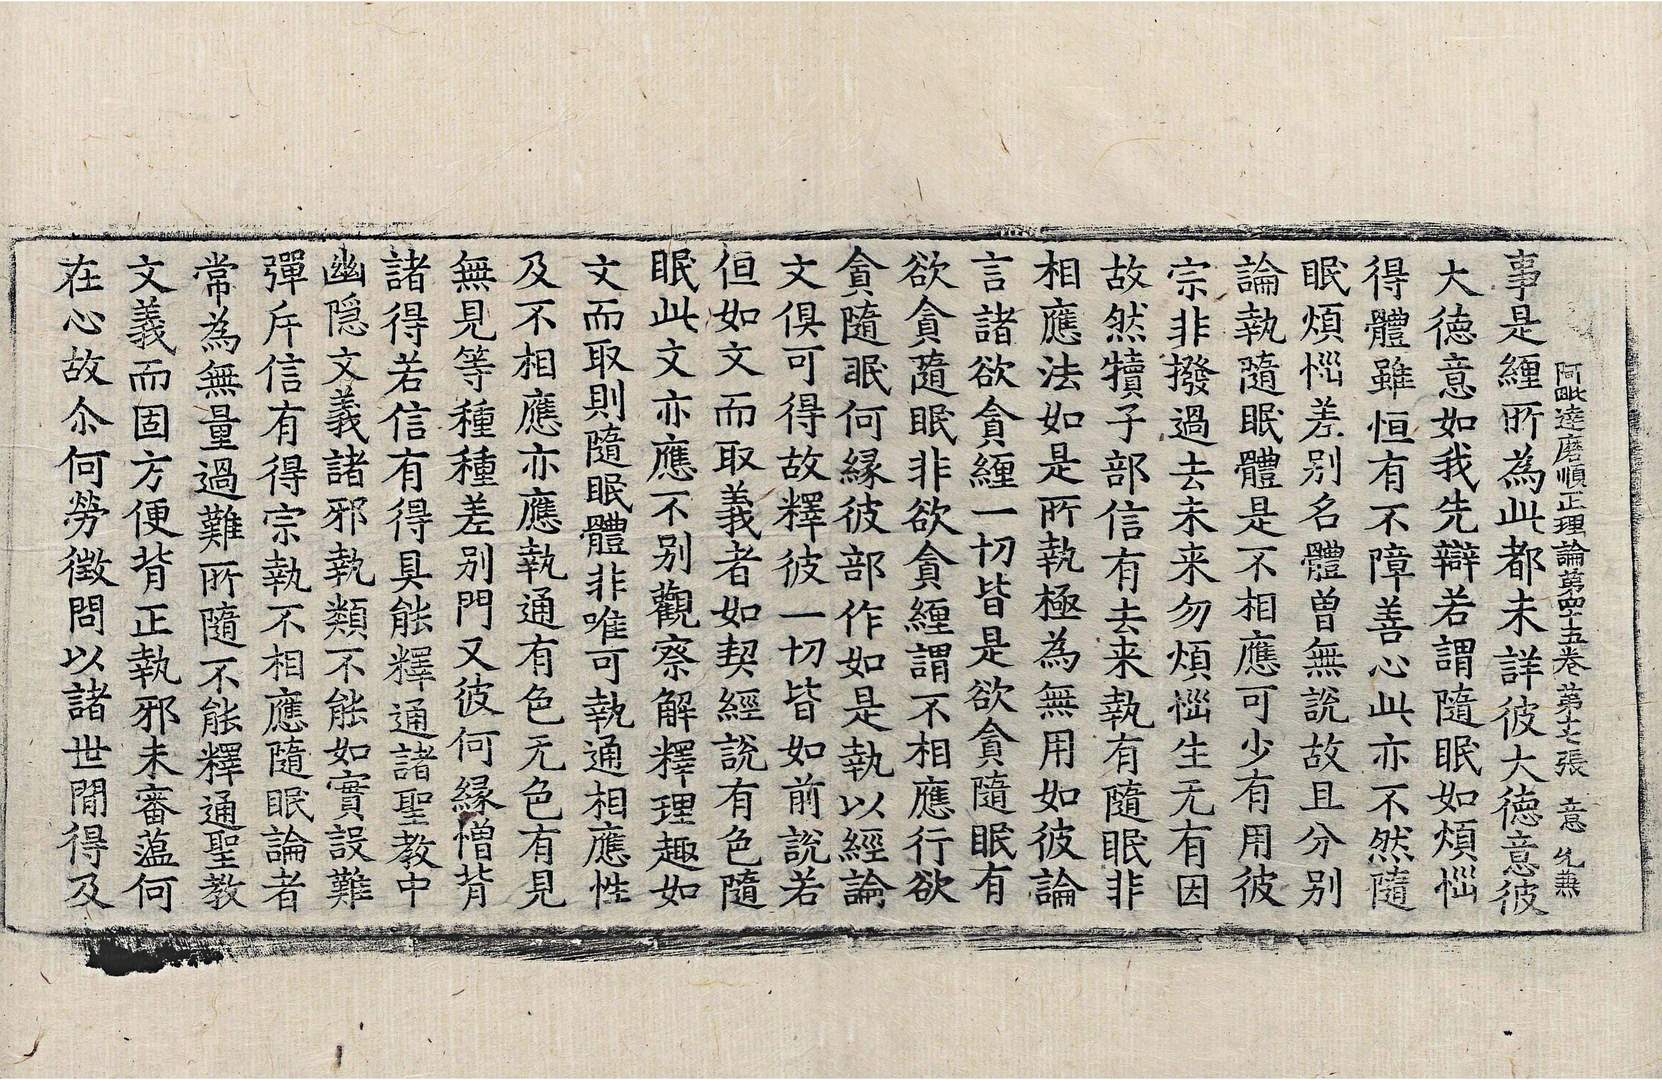 阿毗達磨順正理論第四十五卷 第十七張 意 允燕
事是纏所為此都未詳彼大德意彼
大德意如我先辯若謂隨眠如煩惱
得體雖恒有不障善心此亦不然隨
眠煩惱差別名體曾無說故且分別
論執隨眠體是不相應可少有用彼
宗非撥過去未来勿煩惱生无有因
故然犢子部信有去来執有隨眠非
相應法如是所執極為無用如彼論
言諸欲貪纏一切皆是欲貪隨眠有
欲貪隨眠非欲貪纏謂不相應行欲
貪隨眠何緣彼部作如是執以經論
文俱可得故釋彼一切皆如前說若
但如文而取義者如契經說有色隨
眠此文亦應不別觀察解釋理趣如
文而取則隨眠體非唯可執通相應性
及不相應亦應執通有色无色有見
無見等種種差別門又彼何緣憎背
諸得若信有得具能釋通諸聖教中
幽隱文義諸邪執類不能如實設難
彈斥信有得宗執不相應隨眠論者
常為無量過難所隨不能釋通聖教
文義而固方便背正執邪未審薀何
在心故尒何勞徵問以諸世閒得及